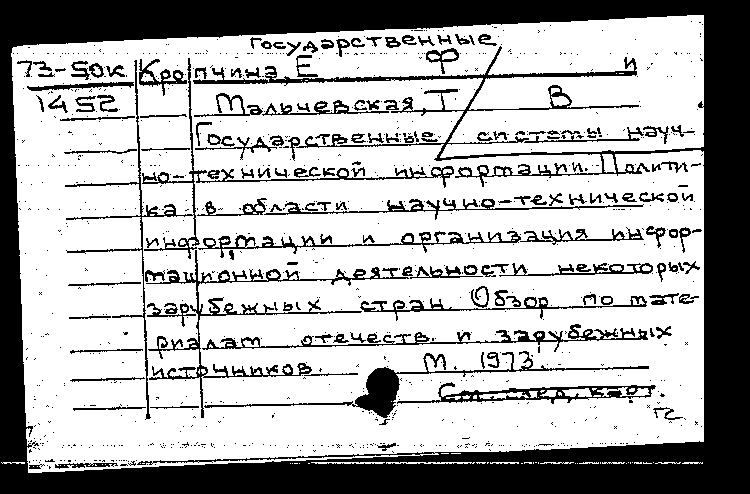 Государственные
73-50к Кропчина, Е Ф и
1452 Мальчевская, Т В
Государственные системы науч-
но-технической информации. Полити-
ка в области научно-технической
информации и организация инфор-
мационной деятельности некоторых
зарубежных стран. Обзор по мате-
риалам отечеств. и зарубежных
источников. М., 1973.
См. след. карт.